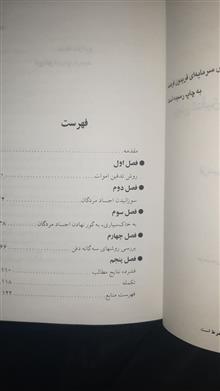 فهرست
مقدمه
● فصل اول
روش تدفین اموات
● فصل دوم
سوزانیدن اجساد مردگان
● فصل سوم
به خاکسپاری، به گور نهادن اجساد مردگان
● فصل چهارم
بررسی روشهای سه‌گانه دفن ۶۶
● فصل پنجم
فشرده نتایج مطالب ۱۱۰
تکمله ۱۱۸
فهرست منابع ۱۲۲
سرمایه‌ای فریدون
به چاپ رسیده است